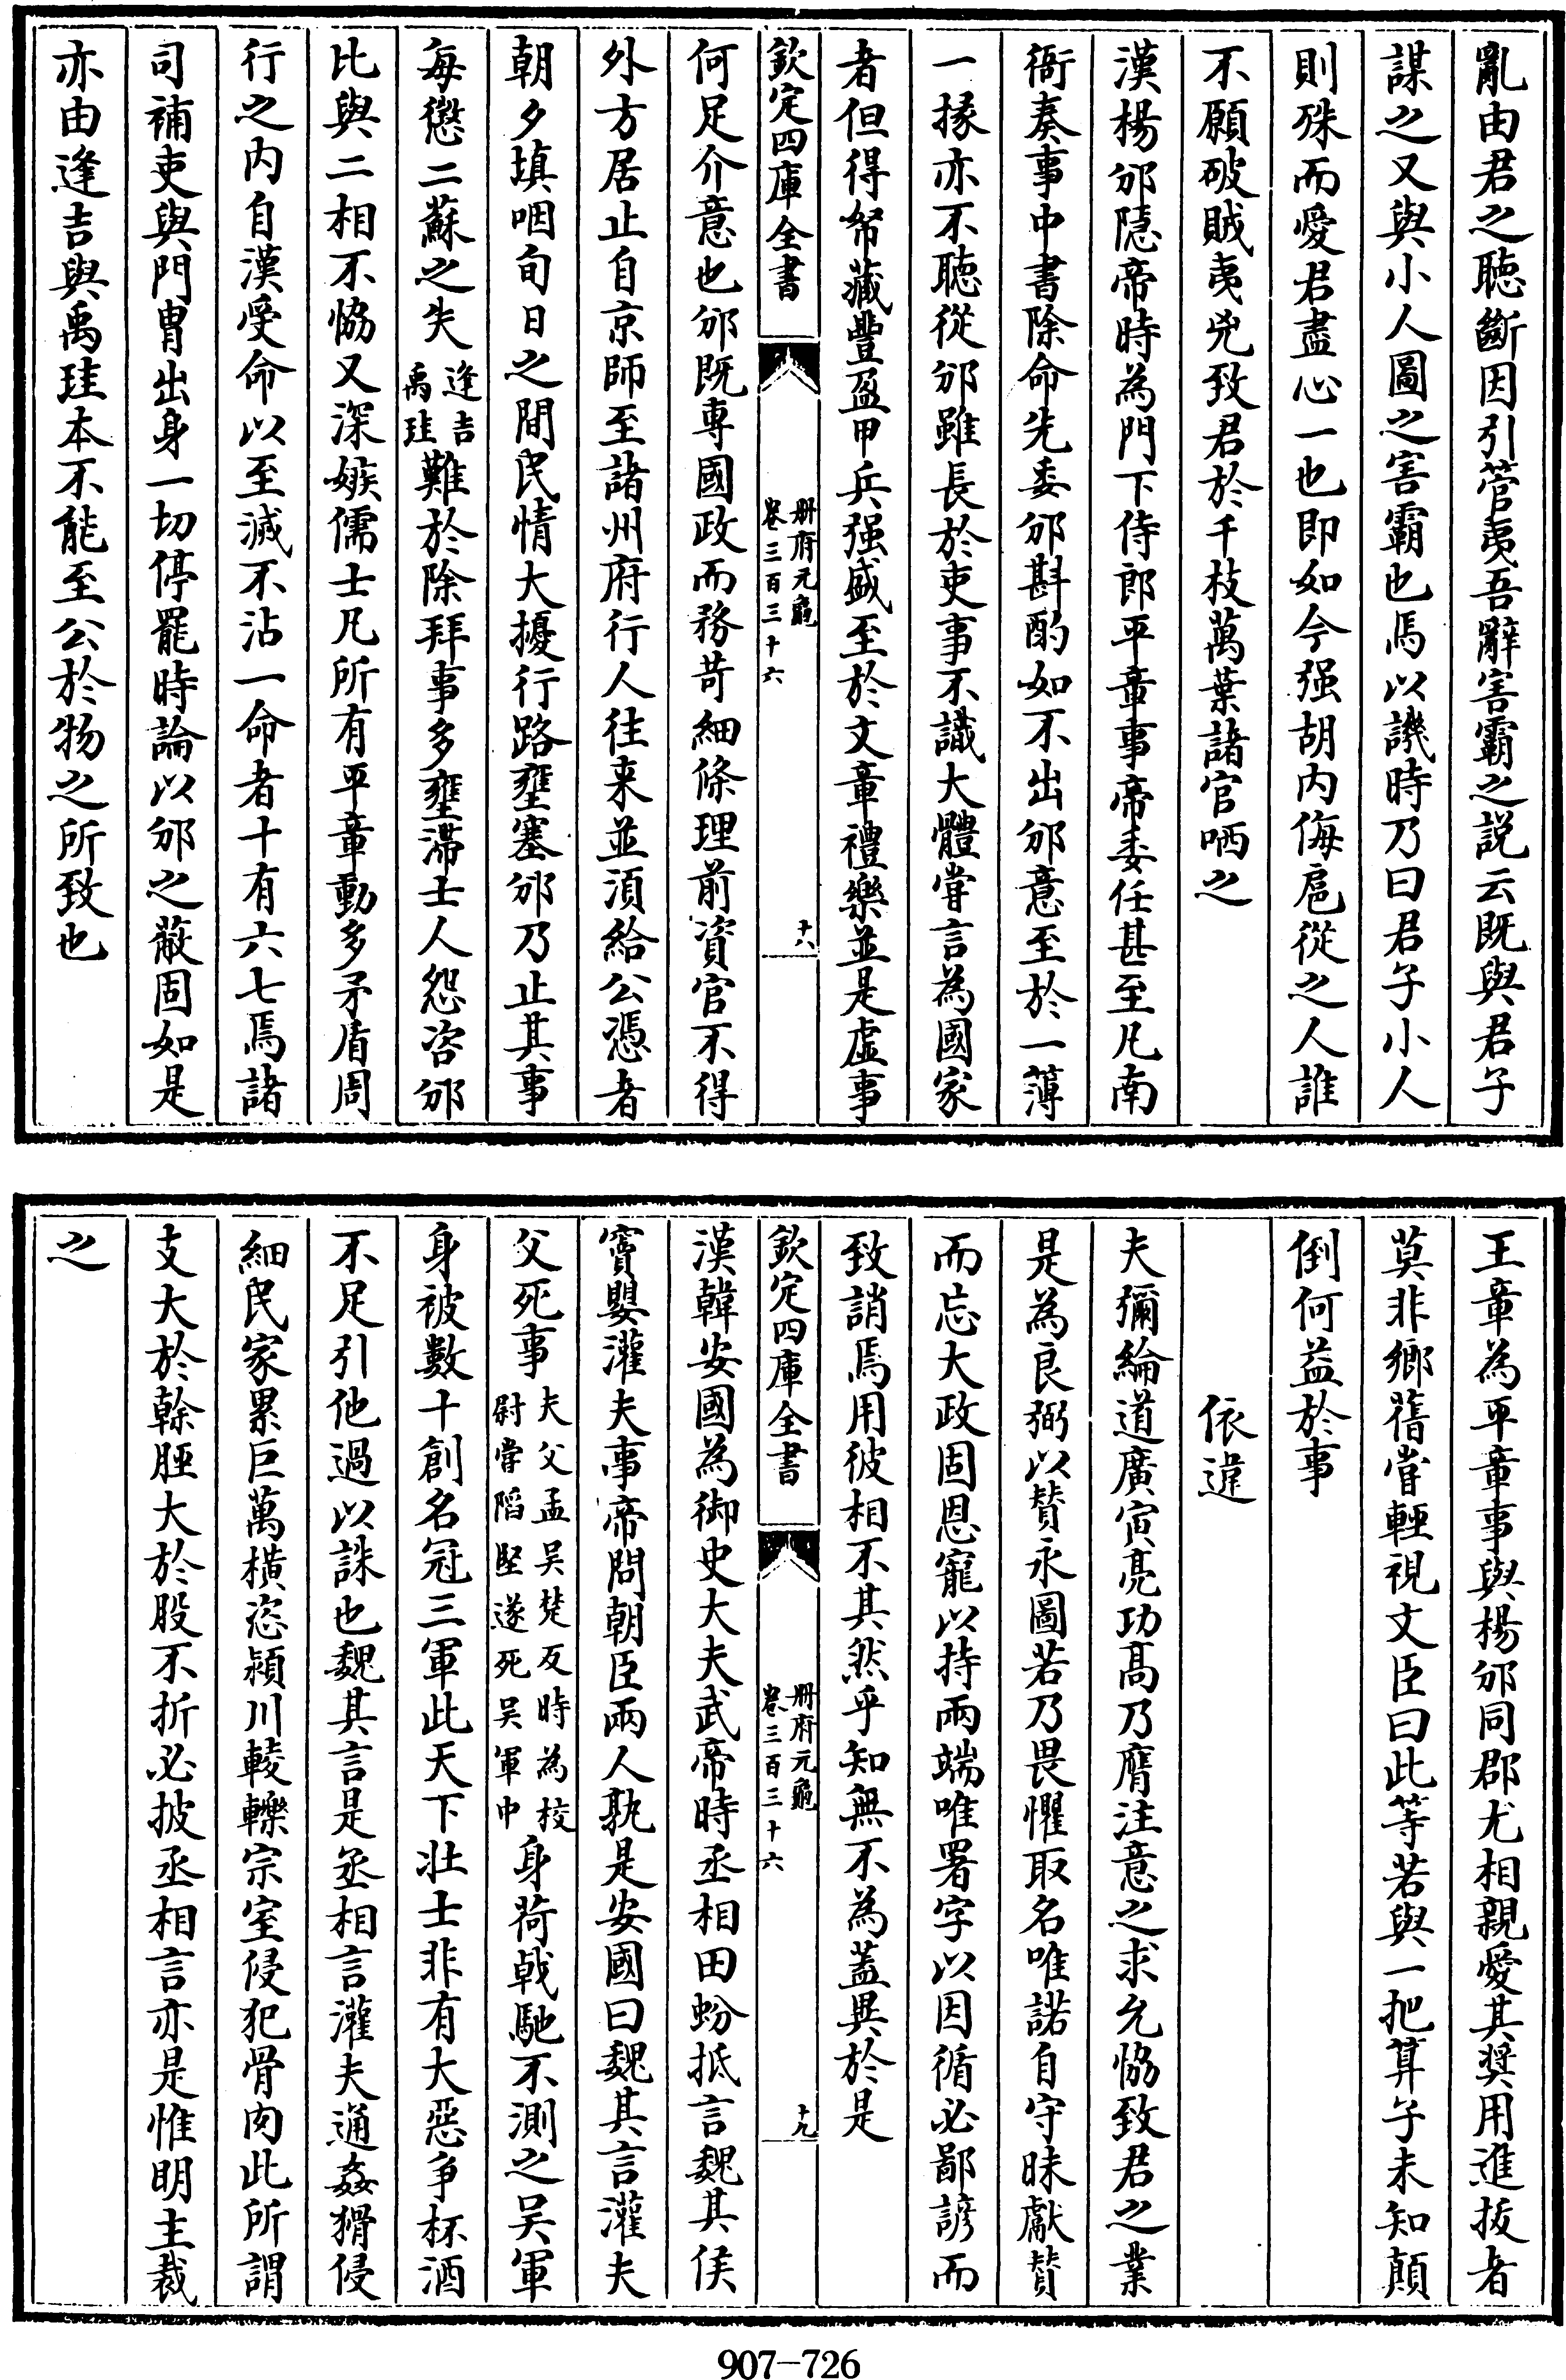 亂由君之聽斷因引管夷吾辭害霸之説云既與君子
謀之又與小人圖之害霸也馬以譏時乃曰君子小人
則殊而愛君盡心一也即如今强胡内侮扈從之人誰
不願破賊夷兇致君於千枝萬葉諸官哂之
漢楊邠隱帝時為門下侍郎平章事帝委任甚至凡南
衙奏事中書除命先委邠斟酌如不出邠意至於一薄
一掾亦不聽從邠雖長於吏事不識大體嘗言為國家
者但得帑藏豐盈甲兵强盛至於文章禮樂並是虚事
欽定四庫全書
册府元龜
卷三百三十六
十八
何足介意也邠既專國政而務苛細條理前資官不得
外方居止自京師至諸州府行人往来並須給公憑者
朝夕填咽旬日之間民情大擾行路壅塞邠乃止其事
每懲二蘇之失逢吉禹珪難於除拜事多壅滯士人怨咨邠
比與二相不恊又深嫉儒士凡所有平章動多矛盾周
行之内自漢受命以至滅不沾一命者十有六七焉諸
司補吏與門胄出身一切停罷時論以邠之蔽固如是
亦由逢吉與禹珪本不能至公於物之所致也
王章為平章事與楊邠同郡尤相親愛其奬用進拔者
莫非鄉舊嘗輕視文臣曰此等若與一把算子未知顛
倒何益於事
依違
夫彌綸道廣寅亮功髙乃膺注意之求允恊致君之業
是為良弼以賛永圖若乃畏懼取名唯諾自守昧獻賛
而忘大政固恩寵以持兩端唯署字以因循必鄙諺而
致誚焉用彼相不其然乎知無不為蓋異於是
欽定四庫全書
册府元龜
卷三百三十六
十九
漢韓安國為御史大夫武帝時丞相田蚡抵言魏其侯
竇嬰灌夫事帝問朝臣兩人孰是安國曰魏其言灌夫
父死事夫父孟吴楚反時為校尉嘗䧟堅遂死吴軍中身荷㦸馳不測之吴軍
身被數十創名冠三軍此天下壯士非有大惡争杯酒
不足引他過以誅也魏其言是丞相言灌夫通姦猾侵
細民家累巨萬横恣潁川輘轢宗室侵犯骨肉此所謂
支大於幹脛大於股不折必披丞相言亦是惟明主裁
之
907-726